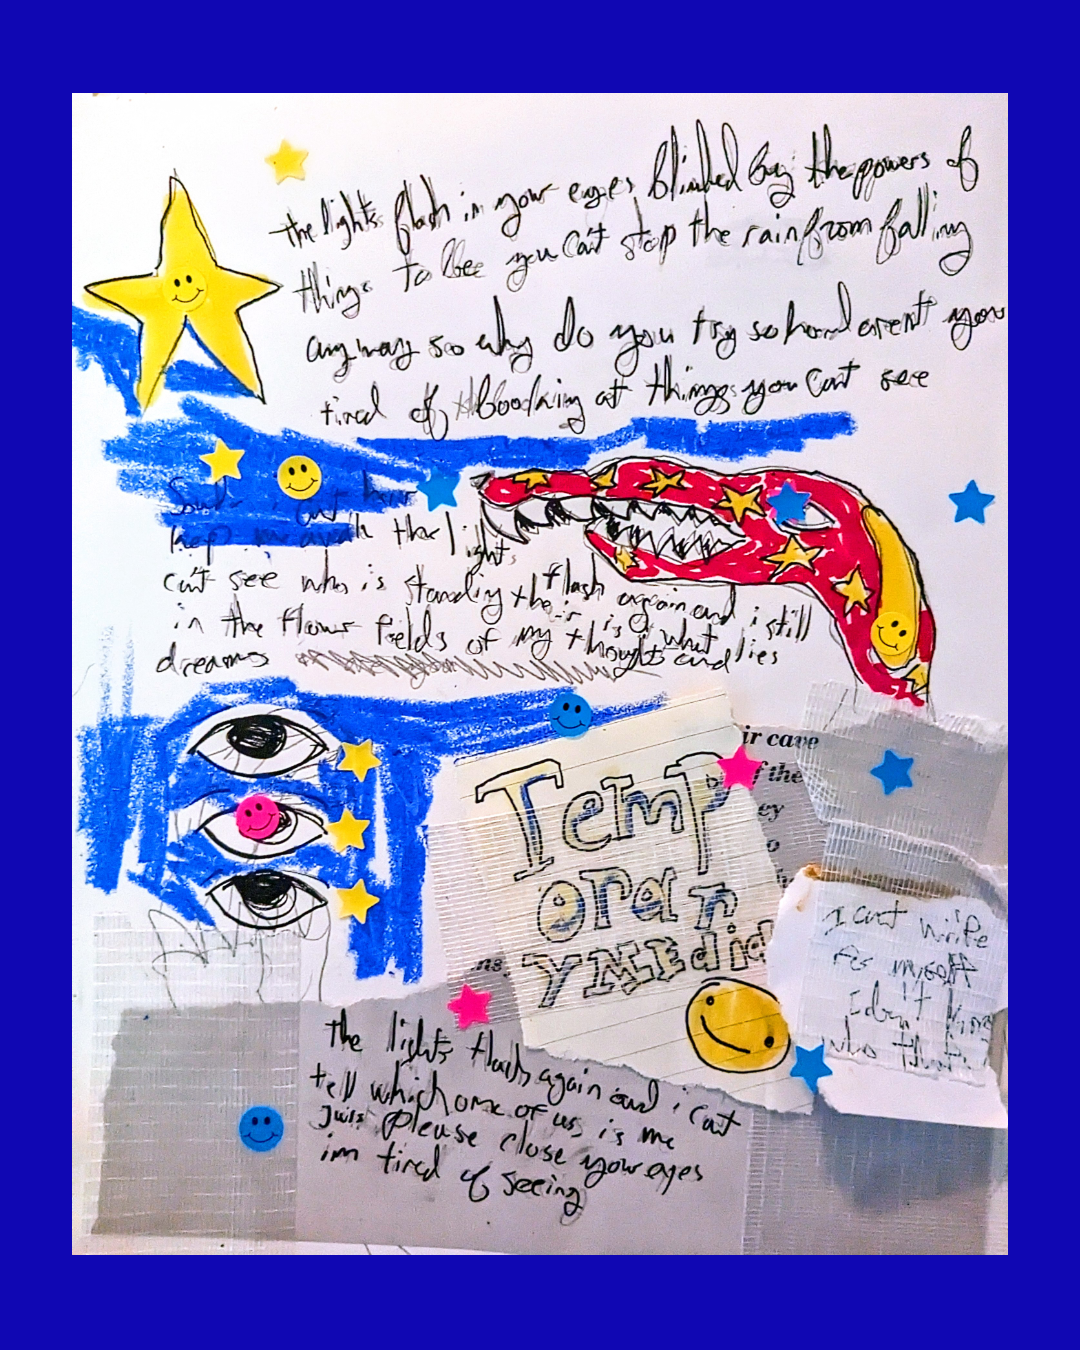 the lights flash in your eyes blinded by the powers of
things to bee you can't stop the rain from falling
anyway so why do you try so hard arent you
tired of bloooking at things you cant see
Souls i cut hear
keep me awak the lights
flash again and i still
can't see who is standing their is what
in the flower fields of my thought and lies
dreams
ir cave
f the
ey
o
Temp
orar
yMEdid
ns.
I can't write
for myself
I don't
who that is
the lights flash again and i cat
tell which one of us is me
Juls please close your eyes
im tired of seeing